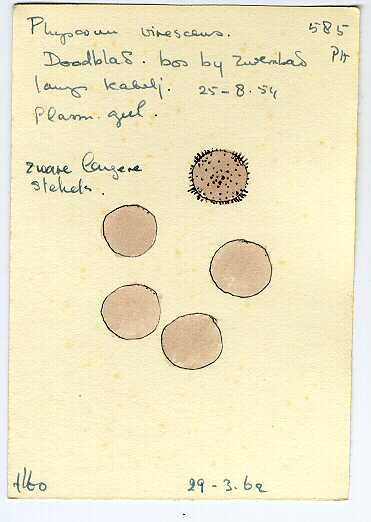 Physarum virescens. 585
Doodblad. bos by Zwembad PH
langs kabelj. 25-8.54
Plasm. geel.
Zware langere
stekels.
29-3.62